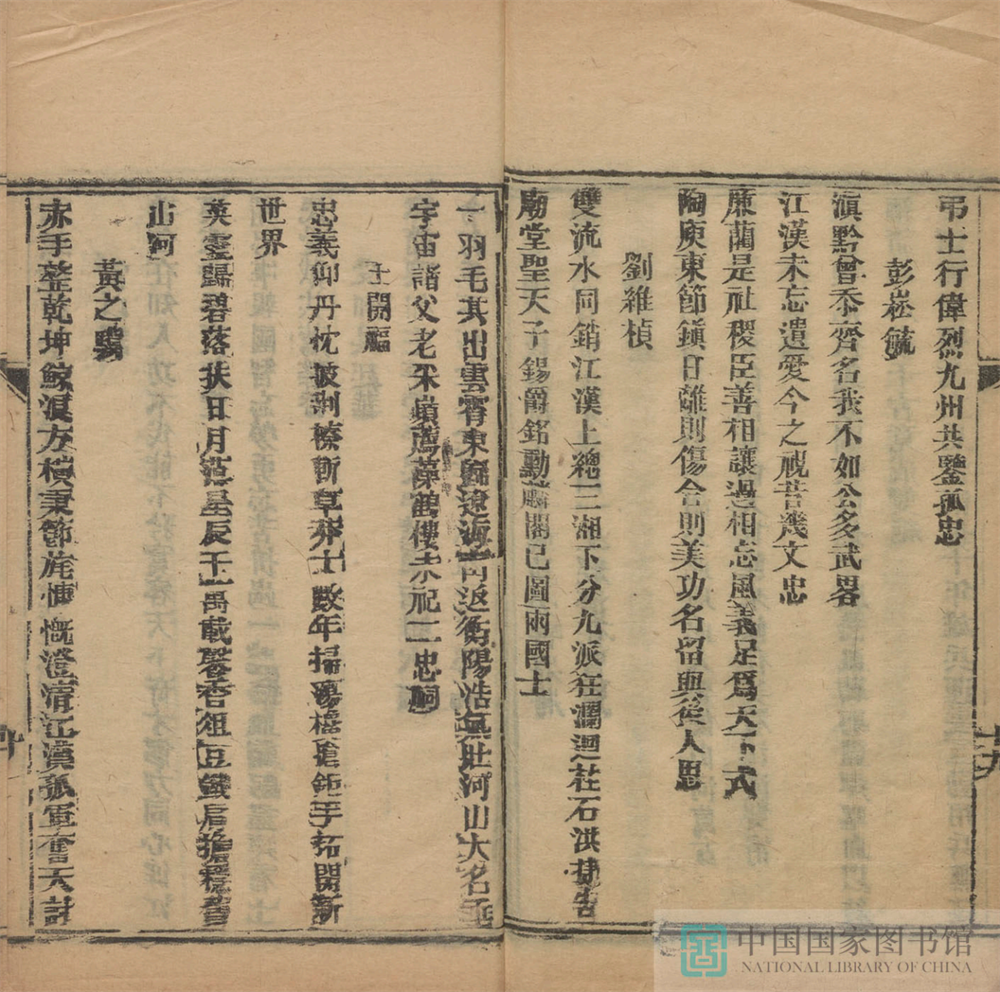 弔士行偉烈九州共鑒孤忠
彭崧毓
滇黔曾忝齊名我不如公多武畧
江漢未忘遺愛今之視昔幾文忠
廉藺是社稷臣善相讓過相忘風義足爲天下式
陶庾東節鎮日離則傷合則美功名留與後人思
劉維楨
雙流水同銷江漢上總三湘下分九派狂瀾迴柱石洪捷告
廟堂聖天子錫爵銘勳麟閣已圖兩國士
一羽毛其出雲霄東歸遼海南返衡陽浩氣壯河山大名垂
宇宙諸父老采蘋薦藻鶴樓永祀二忠祠
王開福
忠義仰丹忱披荆榛斬草莽士數年掃蕩欃槍鉅手拓開新
世界
英靈歸碧落扶日月范星辰千萬載馨香俎豆鐵肩擔穩舊
山河
黃之驥
赤手整乾坤鯨浪方橫秉節旄慷慨澄清江漢孤軍奮天討
十九
中国国家图书馆
NATIONAL LIBRARY OF CHINA